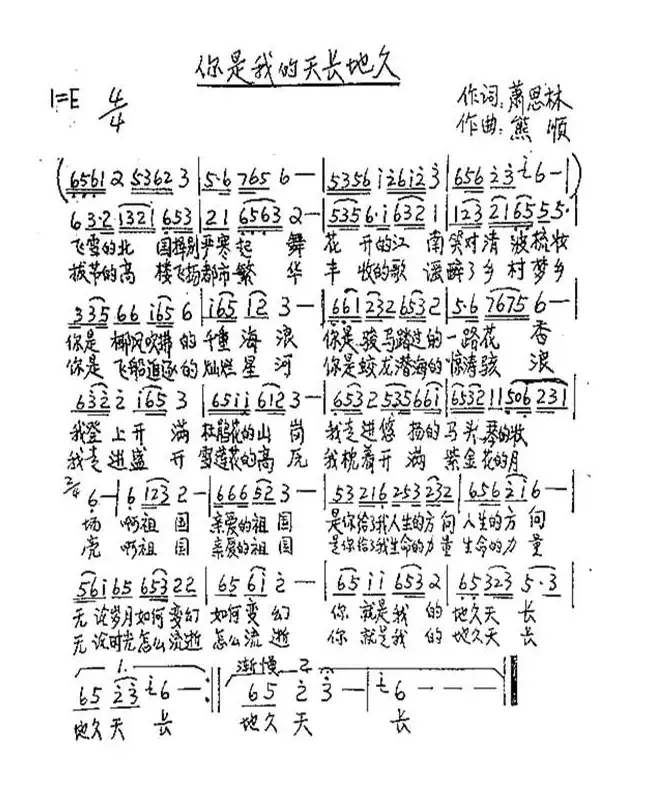 你是我的天长地久
1=E 4/4
作词:萧思林
作曲:熊顺
(6561 2 5362 3 | 5·6 765 6 — | 5356 i 26i2 3 | 656 2 3 2 6 — |)
6 3·2 1321 653 | 2 1 6563 2 — | 535 6·i 632 1 | 123 2165 5 5· |
飞雪的北国挥别严寒起舞 花开的江南笑对清波梳妆
拔节的高楼飞扬都市繁华 丰收的歌谣醉了乡村梦乡
335 66 i65 6 | i65 i2 3 — | 661 232 6532 | 5·6 7675 6 — |
你是椰风吹拂的千重海浪 你是骏马踏过的一路花香
你是飞船追逐的灿烂星河 你是蛟龙潜海的惊涛骇浪
6322 2 i65 3 | 65ii 612 3 — | 653 2 535661 | 6532 11506 231 |
我登上开满杜鹃花的山岗 我走进悠扬的马头琴的牧
我走进盛开雪莲花的高原 我枕着开满紫金花的月
2/4 6 — | 6 123 2 — | 666 52 3 — | 53216 253 232 | 656 2i 6 — |
场 啊祖国 亲爱的祖国 是你给了我人生的方向 人生的方向
亮 啊祖国 亲爱的祖国 是你给了我生命的力量 生命的力量
56i 65 653 22 | 65 6i 2 — | 65 ii 653 2 | 65 323 5·3 |
无论岁月如何变幻 如何变幻 你就是我的地久天长
无论时光怎么流逝 怎么流逝 你就是我的地久天长
1. 渐慢 2.
65 23 2 6 — :|| 65 2 3 — | 2 6 — — — ||
地久天长 地久天长